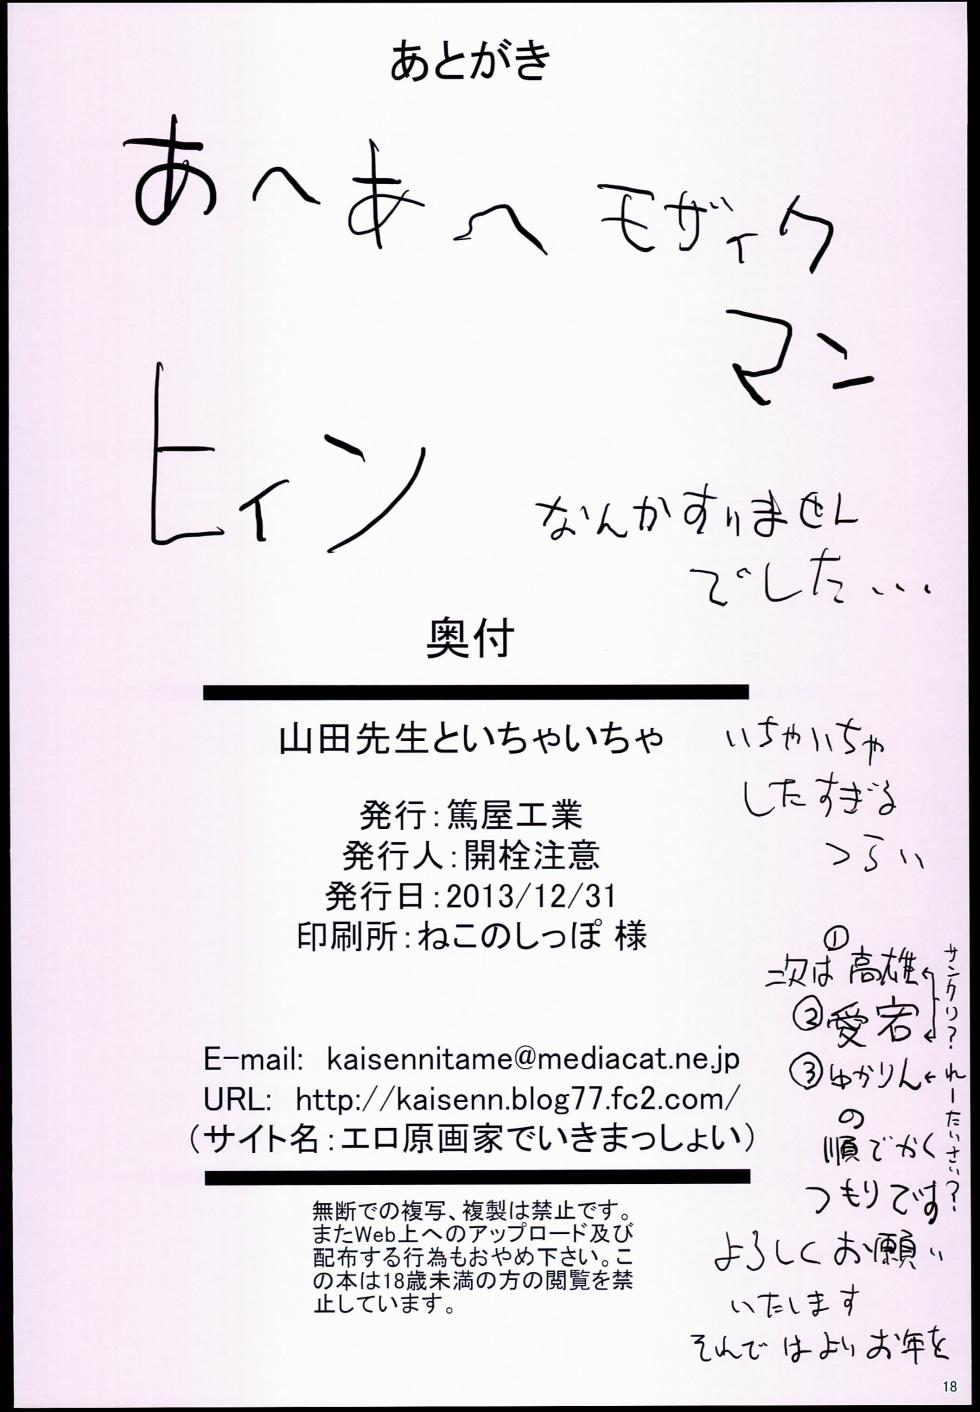 あとがき
あへあへ モザイク
マン
ヒィン
なんかすりません
でした...
奥付
山田先生といちゃいちゃ
発行：篤屋工業
発行人：開栓注意
発行日：2013/12/31
印刷所：ねこのしっぽ 様
E-mail: kaisennitame@mediacat.ne.jp
URL: http://kaisenn.blog77.fc2.com/
（サイト名：エロ原画家でいきまっしょい）
無断での複写、複製は禁止です。
またWeb上へのアップロード及び
配布する行為もおやめ下さい。こ
の本は18歳未満の方の閲覧を禁
止しています。
いちゃいちゃ
したすぎる
つらい
①
次は高雄
②愛宕
③ゆかりん
の
順でかく
つもりです
サンクリ？
れーたいさい？
よろしくお願い
いたします
それではよいお年を
18